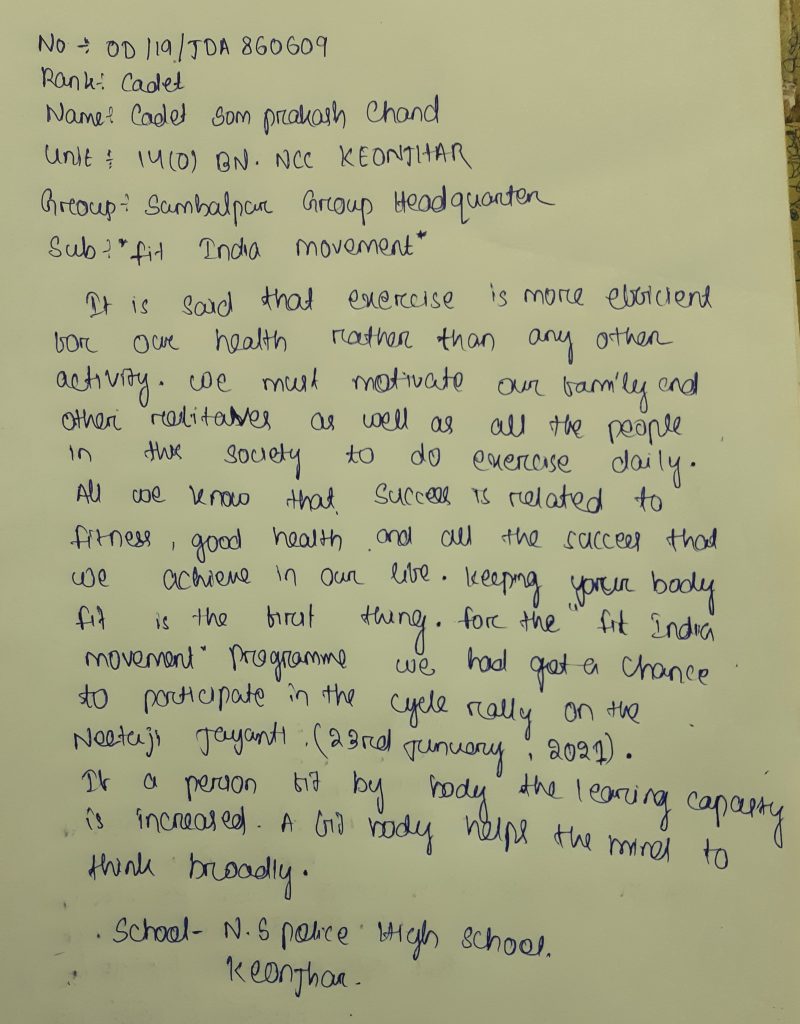 No :- OD/19/JDA 860609
Rank:- Cadet
Name:- Cadet Som prakash Chand
Unit :- 14(O) BN. NCC KEONJHAR
Group:- Sambalpur Group Headquarter
Sub:- "fit India movement"
It is said that exercise is more efficient
for our health rather than any other
activity. we must motivate our family and
other relitaves as well as all the people
in the society to do exercise daily.
All we know that success is related to
fitness, good health and all the success that
we achieve in our live. keeping your body
fit is the first thing. for the "fit India
movement" programme we had got a chance
to participate in the cycle rally on the
Neetaji Jayanti.(23rd january, 2021).
If a person fit by body the learing capacity
is increased. A fit body helps the mind to
think broadly.
School- N.S police High school.
Keonjhar.